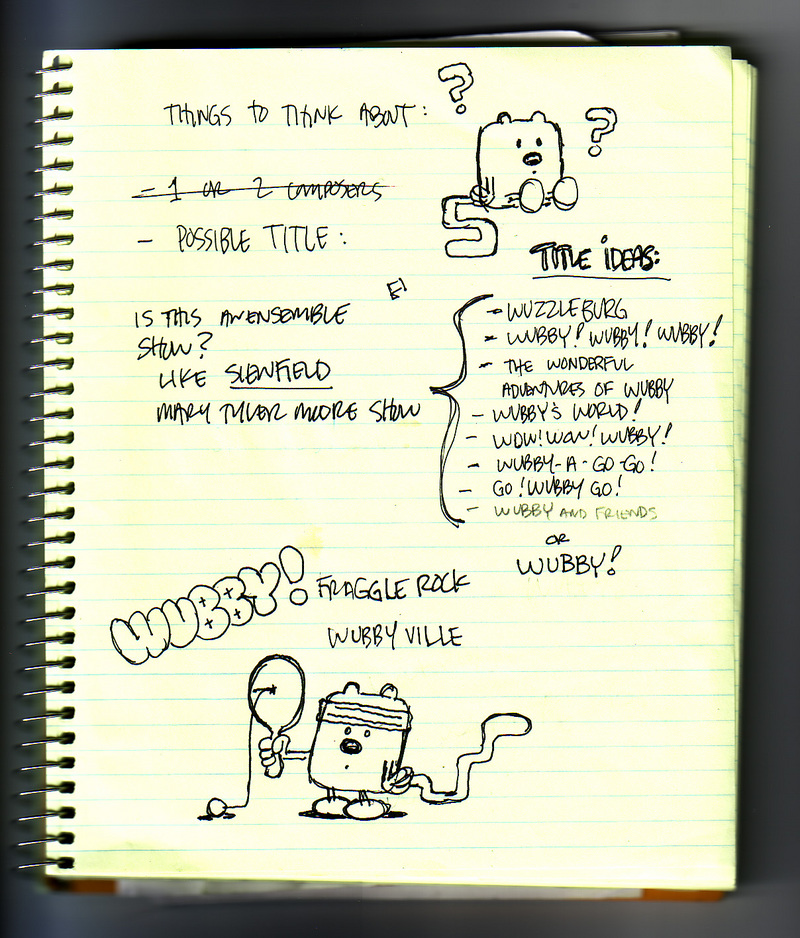 THINGS TO THINK ABOUT:
? ?
- 1 OR 2 COMPOSERS
5
- POSSIBLE TITLE:
TITLE IDEAS:
IS THIS AN ENSEMBLE
SHOW?
LIKE SIENFIELD
MARY TYLER MOORE SHOW
- WUZZLEBURG
- WUBBY! WUBBY! WUBBY!
- THE WONDERFUL
ADVENTURES OF WUBBY
- WUBBY'S WORLD!
- WOW! WOW! WUBBY!
- WUBBY-A-GO-GO!
- GO! WUBBY GO!
- WUBBY AND FRIENDS
OR
WUBBY!
WUBBY!
FRAGGLE ROCK
WUBBYVILLE